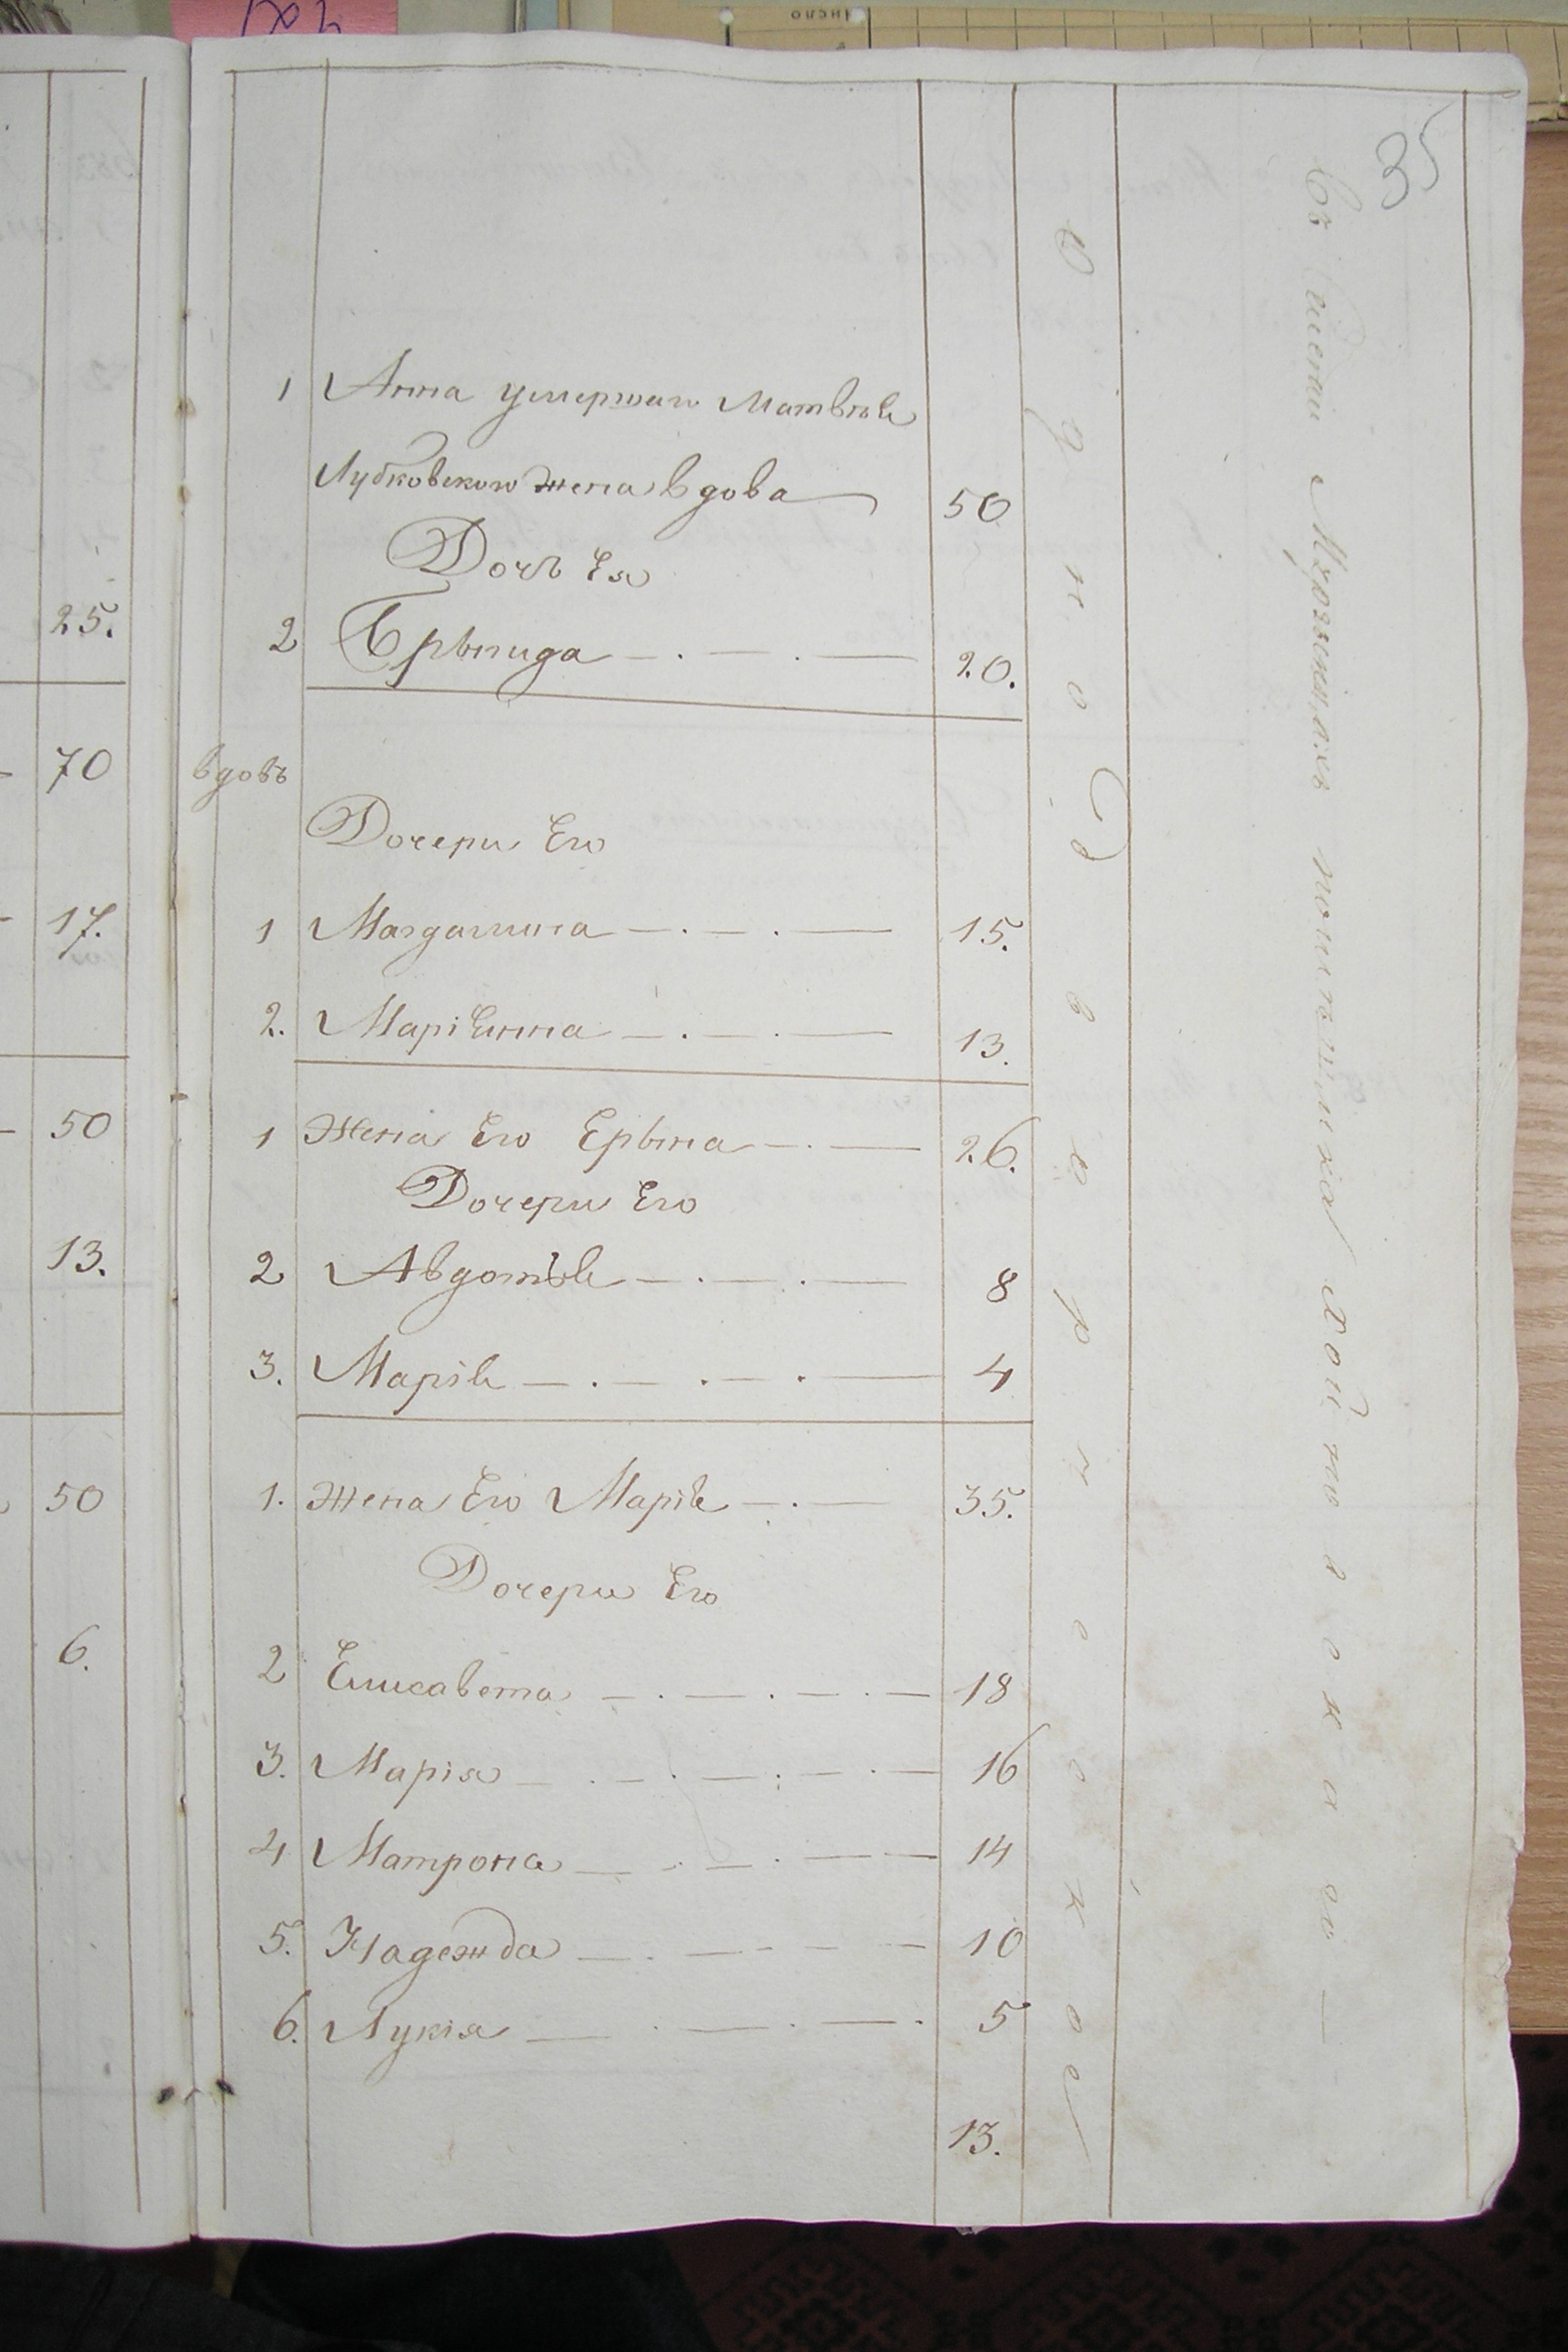 35
1 Анна умершаго Матвѣѣ
Лубковского жена вдова 50
Дочь Ея
2 Брыгида 20.
вдовъ
Дочери Его
1 Магдалина 15.
2. Маріанна 13.
1 Жена Его Ерына 26.
Дочери Его
2 Авдотѣѣ 8
3. Маріѣ 4
1. Жена Его Маріѣ 35.
Дочери Его
2 Елисавета 18
3. Марія 16
4 Матрона 14
5. Надежда 10
6. Лукія 5
13.
Однодворческое
Въ имѣніи помѣщика
25.
70
17.
50
13.
50
6.